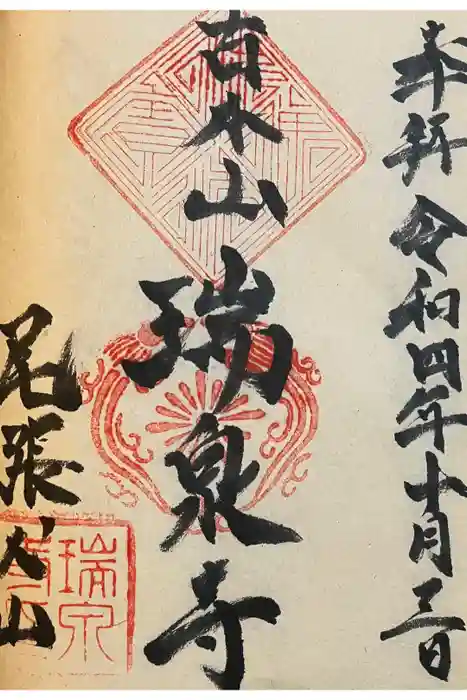 奉拝 令和四年十月三日
古木山 瑞泉寺
尾張犬山
瑞泉